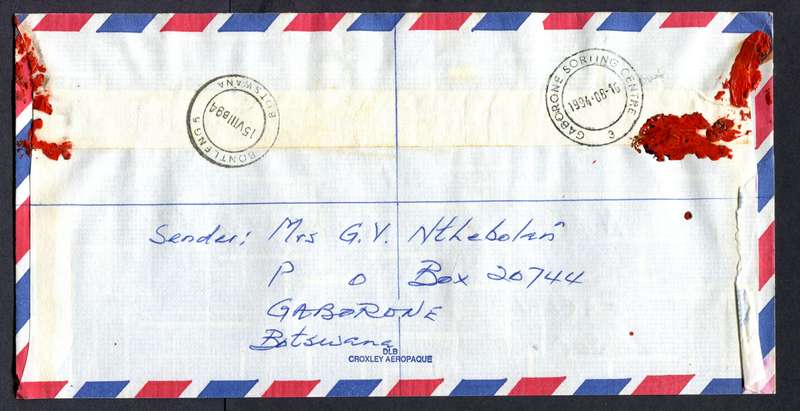 BONTLENG 5
15 VIII 894
BOTSWANA
GABORONE SORTING CENTRE
1994-08-
3
Sender: Mrs G.V. Nthebolan
P O Box 20744
GABORONE
Botswana
DLB
CROXLEY AEROPAQUE